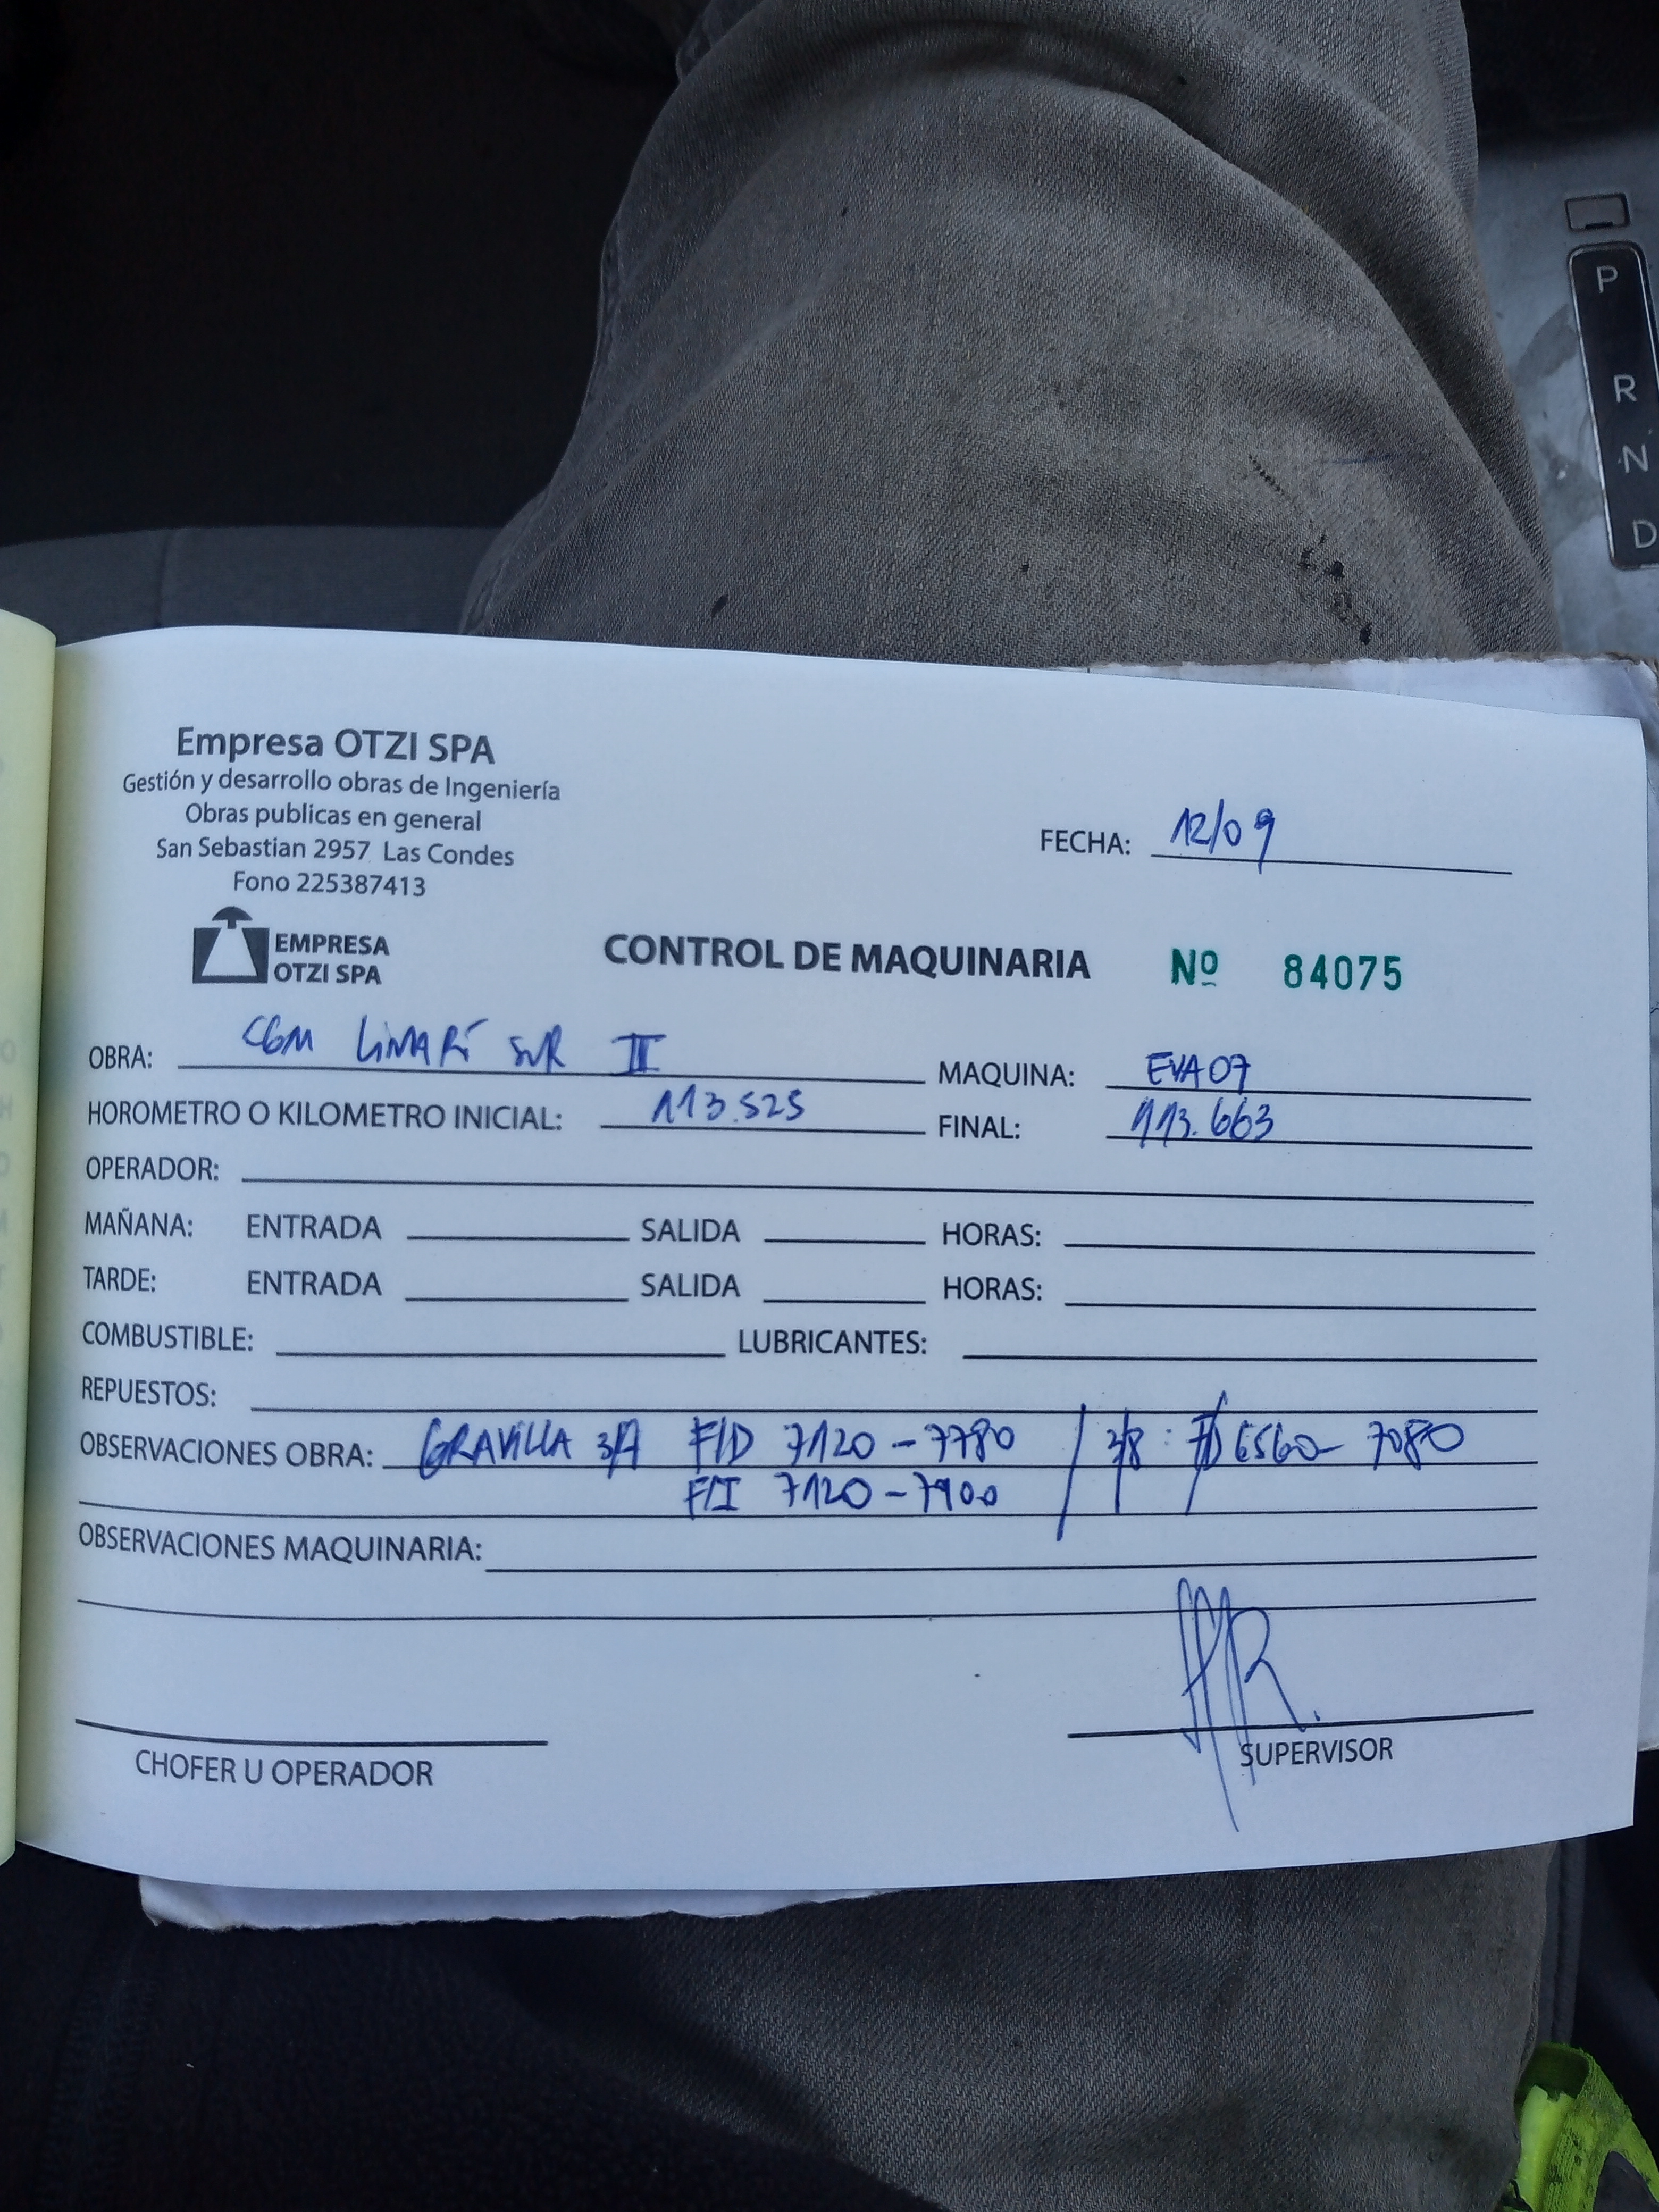 P
R
N
D
Empresa OTZI SPA
Gestión y desarrollo obras de Ingeniería
Obras publicas en general
San Sebastian 2957 Las Condes
Fono 225387413
FECHA: 12/09
EMPRESA
OTZI SPA
CONTROL DE MAQUINARIA Nº 84075
OBRA: CGM LIMARÍ SUR II MAQUINA: EVA07
HOROMETRO O KILOMETRO INICIAL: 113.525 FINAL: 113.663
OPERADOR:
MAÑANA: ENTRADA SALIDA HORAS:
TARDE: ENTRADA SALIDA HORAS:
COMBUSTIBLE: LUBRICANTES:
REPUESTOS:
OBSERVACIONES OBRA: GRAVILLA F/D 7120-7780 / 3/8 : 6560- 7080
F/I 7120-7900
OBSERVACIONES MAQUINARIA:
CHOFER U OPERADOR
SUPERVISOR